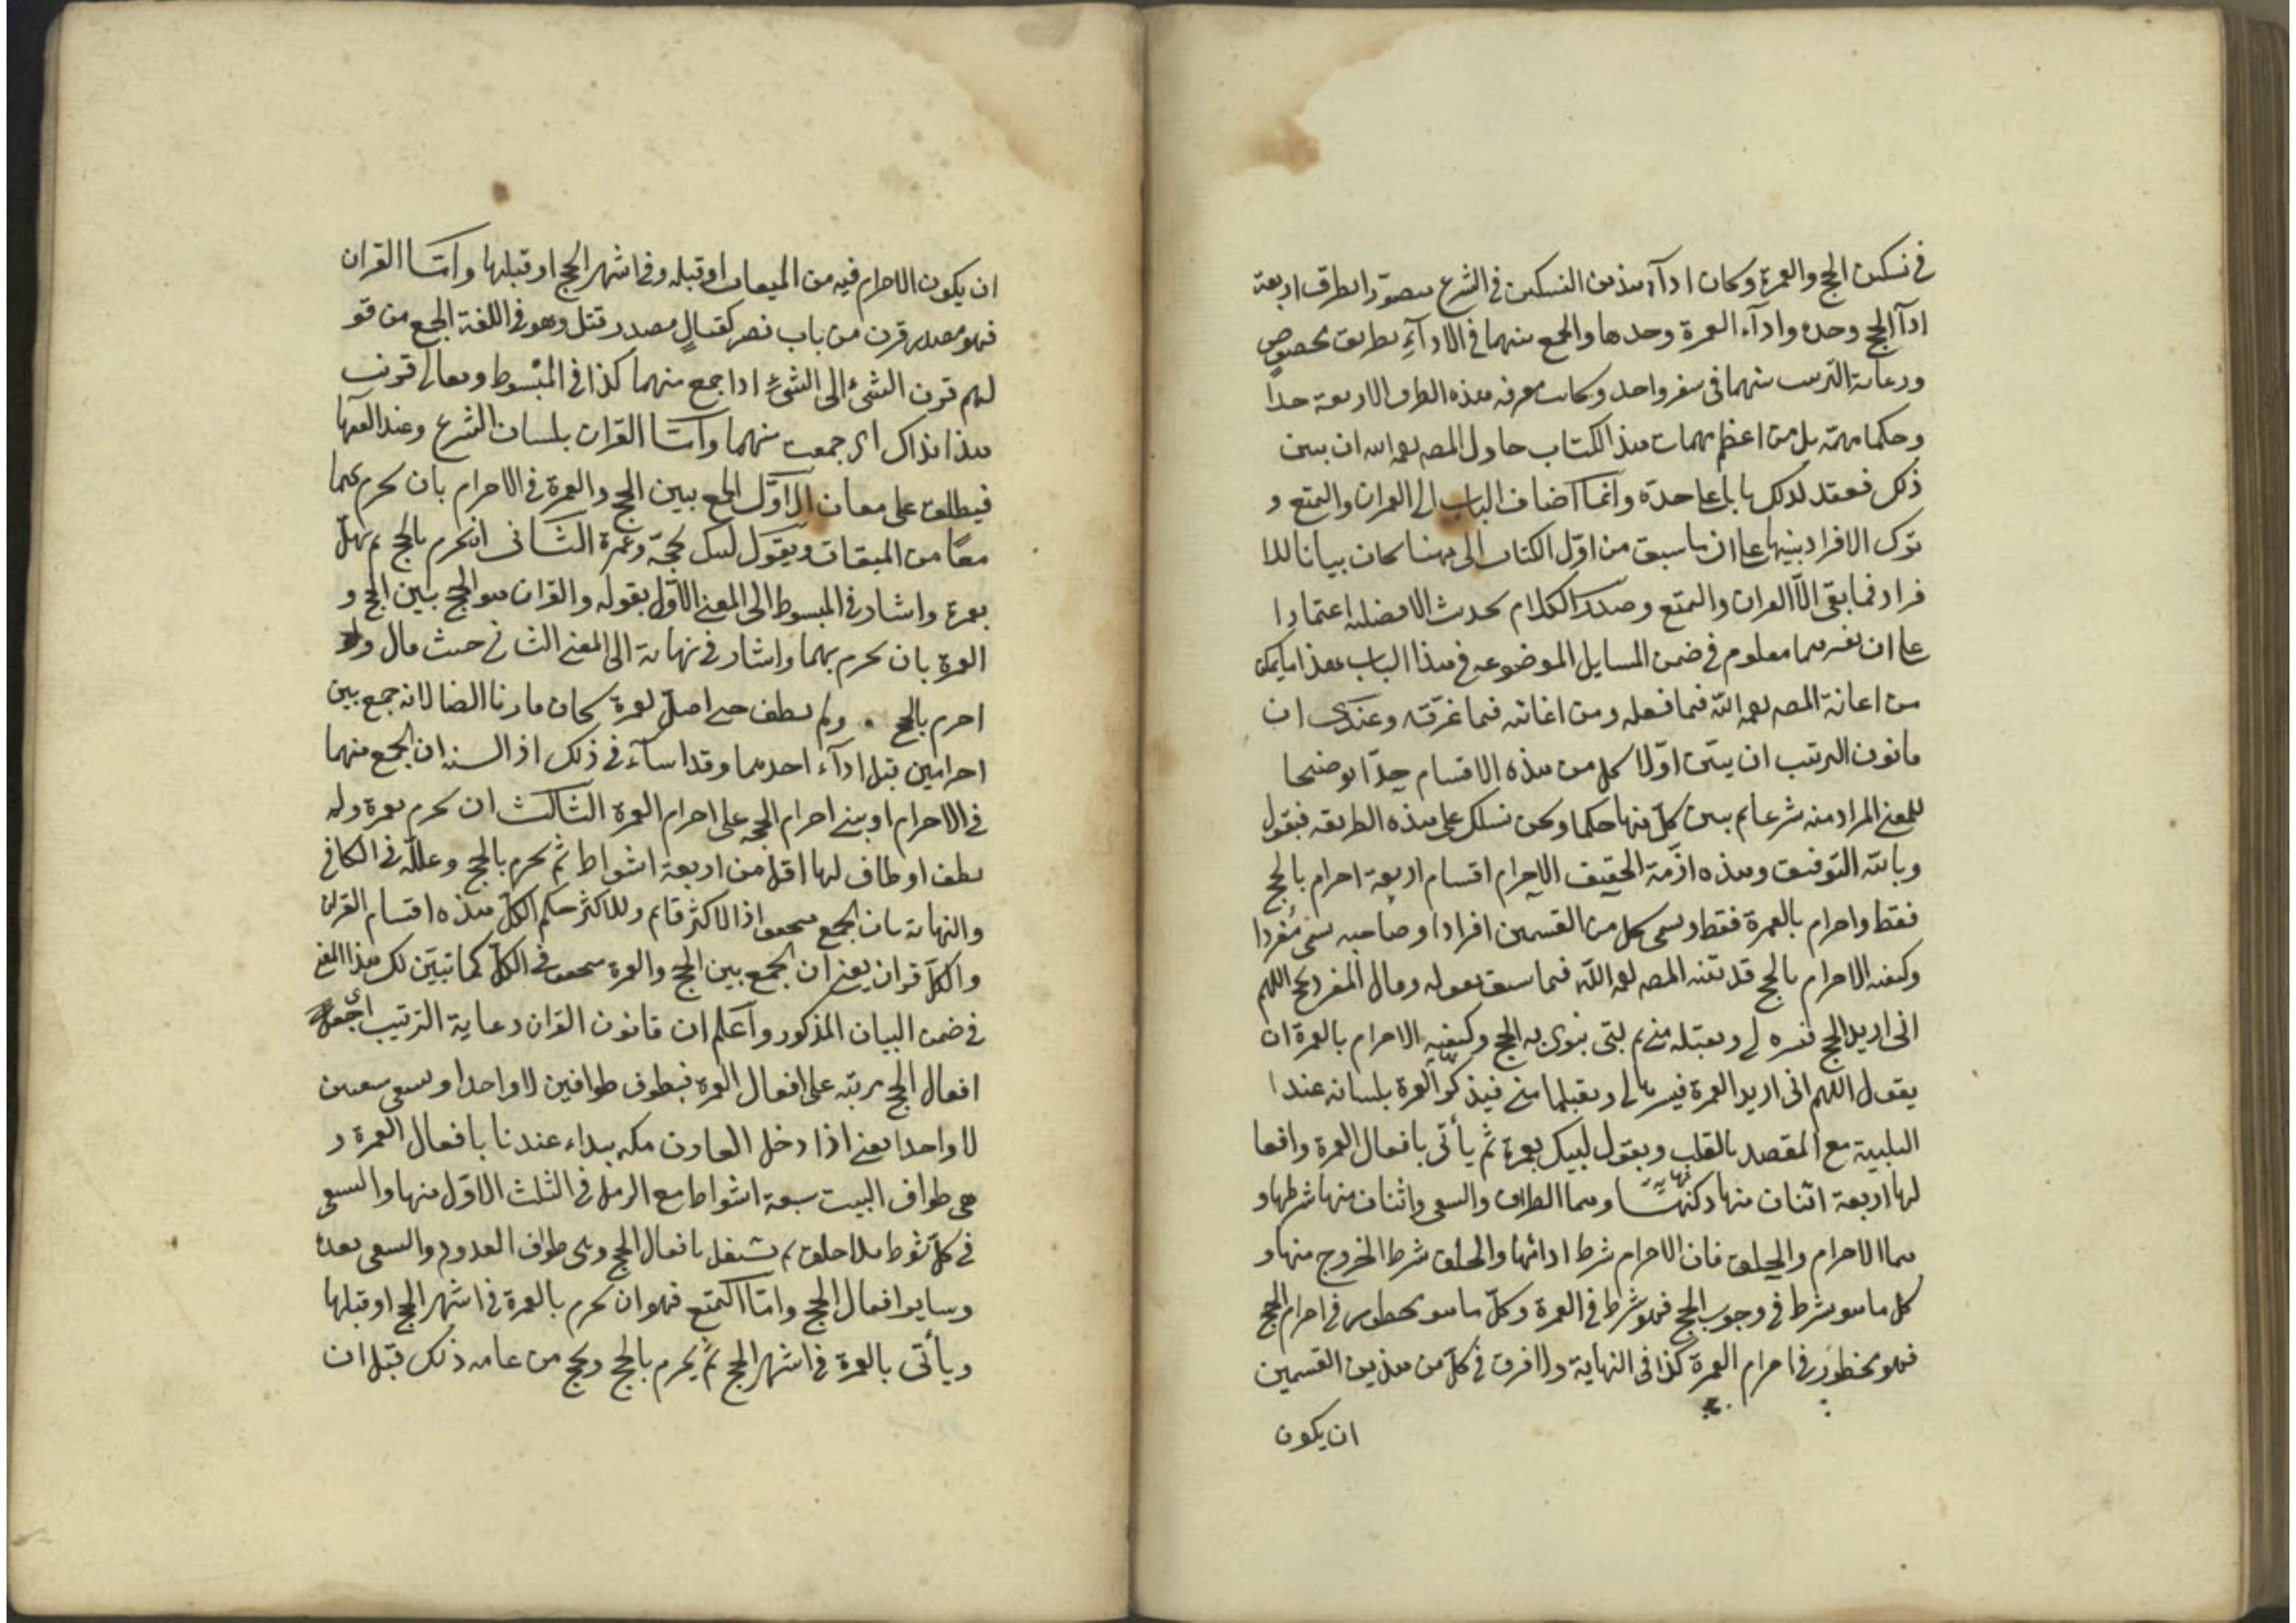 في نسكين الحج والعمرة وكان اداء هذين النسكين في الشرع متصورا بطرق اربعة
اداء الحج وحده واداء العمرة وحدها والجمع بينهما في الاداء بطريق مخصوص
ورعاية الترتيب بينهما في سفر واحد وكانت معرفة هذه الطرق الاربعة حدا
وحكما مهمة بل من اعظم مهمات هذا الكتاب حاول المص رحمه الله ان يبين
ذلك فعقد لذلك بابا على حدة وانما اضاف الباب الى القران والتمتع و
ترك الافراد تنبيها على ان ما سبق من اول الكتاب الى ههنا كان بيانا للا
فراد فما بقي الا القران والتمتع وصدر الكلام بحديث الافضلية اعتمادا
على ان تفسيرهما معلوم في ضمن المسايل الموضوعة في هذا الباب هذا ما يمكن
من اعانة المص رحمه الله فيما فعله ومن اغاثته فيما غرقه وعندي ان
قانون الترتيب ان يبين اولا كل من هذه الاقسام حدا توضيحا
للمعنى المراد منه شرعا ثم يبين كل منها حكما ونحن نسلك على هذه الطريقة فنقول
وبالله التوفيق وهذه ازمة التحقيق الاحرام اقسام اربعة احرام بالحج
فقط واحرام بالعمرة فقط ويسمى كل من القسمين افرادا وصاحبه يسمى مفردا
وكيفية الاحرام بالحج قد بينه المص رحمه الله فيما سبق بقوله وقال المفرد بحج اللهم
اني اريد الحج فيسره لي وتقبله مني ثم لبى ينوي به الحج وكيفية الاحرام بالعمرة ان
يقول اللهم اني اريد العمرة فيسرها لي وتقبلها مني فيذكر العمرة بلسانه عند ا
التلبية مع المقصد بالقلب ويقول لبيك بعمرة ثم يأتي بافعال العمرة وافعا
لها اربعة اثنان منها ركنها وهما الطواف والسعي واثنان منها شرطها و
هما الاحرام والحلق فان الاحرام شرط ادائها والحلق شرط الخروج منها و
كل ما هو شرط في وجوب الحج فهو شرط في العمرة وكل ما هو محظور في احرام الحج
فهو محظور في احرام العمرة كذا في النهاية ولا فرق في كل من هذين القسمين
ان يكون
ان يكون الاحرام فيه من الميقات او قبله وفي اشهر الحج او قبلها واما القران
فهو مصدر قرن من باب نصر كقتال مصدر قتل وهو في اللغة الجمع من قو
لهم قرن الشئ الى الشئ اذا جمع بينهما كذا في المبسوط ويقال قرنت
هذا بذاك اي جمعت بينهما واما القران بلسان الشرع وعند الفقها
فيطلق على معان الاول الجمع بين الحج والعمرة في الاحرام بان يحرم بهما
معا من الميقات ويقول لبيك بحجة وعمرة الثاني ان يحرم بالحج ثم يهل
بعمرة واشار في المبسوط الى المعنى الاول بقوله والقران هو الجمع بين الحج و
العمرة بان يحرم بهما واشار في نهايه الى المعنى الثاني حيث قال ولو
احرم بالحج ولم يطف حتى اهل لعمرة كان قارنا ايضا لانه جمع بين
احرامين قبل اداء احدهما وقد اساء في ذلك اذ السنة ان يجمع بينهما
في الاحرام او يبني احرام الحجة على احرام العمرة الثالث ان يحرم بعمرة ولم
يطف او طاف لها اقل من اربعة اشواط ثم يحرم بالحج وعلله في الكافي
والنهاية بان الجمع متحقق اذ الاكثر قايم وللاكثر حكم الكل هذه اقسام القران
والكل قران يعني ان الجمع بين الحج والعمرة متحقق في الكل كما تبين لك هذا المعنى
في ضمن البيان المذكور واعلم ان قانون القران رعاية الترتيب اي جعل
افعال الحج مرتبة على افعال العمرة فيطوف طوافين لا واحدا ويسعى سعيين
لا واحدا يعني اذا دخل القارن مكه يبداء عندنا بافعال العمرة و
هي طواف البيت سبعة اشواط مع الرمل في الثلث الاول منها والسعي
في كل شوط بلا حلق ثم يشتغل بافعال الحج وهي طواف القدوم والسعي بعده
وساير افعال الحج واما التمتع فهو ان يحرم بالعمرة في اشهر الحج او قبلها
ويأتي بالعمرة في اشهر الحج ثم يحرم بالحج ويحج من عامه ذلك قبل ان